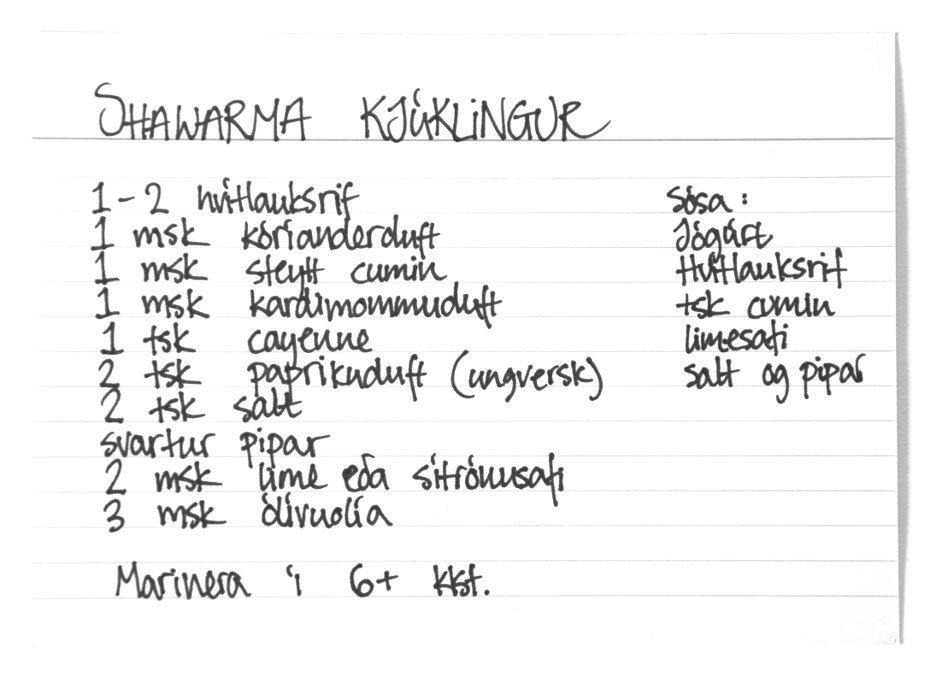 SHAWARMA KJÚKLINGUR
1-2 hvítlauksrif
1 msk kórianderduft
1 msk steytt cumin
1 msk kardimommuduft
1 tsk cayenne
2 tsk paprikuduft (ungversk)
2 tsk salt
svartur pipar
2 msk lime eða sítrónusafi
3 msk ólívuolía
Marinera í 6+ kkst.
Sósa:
Jógúrt
Hvítlauksrif
tsk cumin
limesafi
salt og pipar